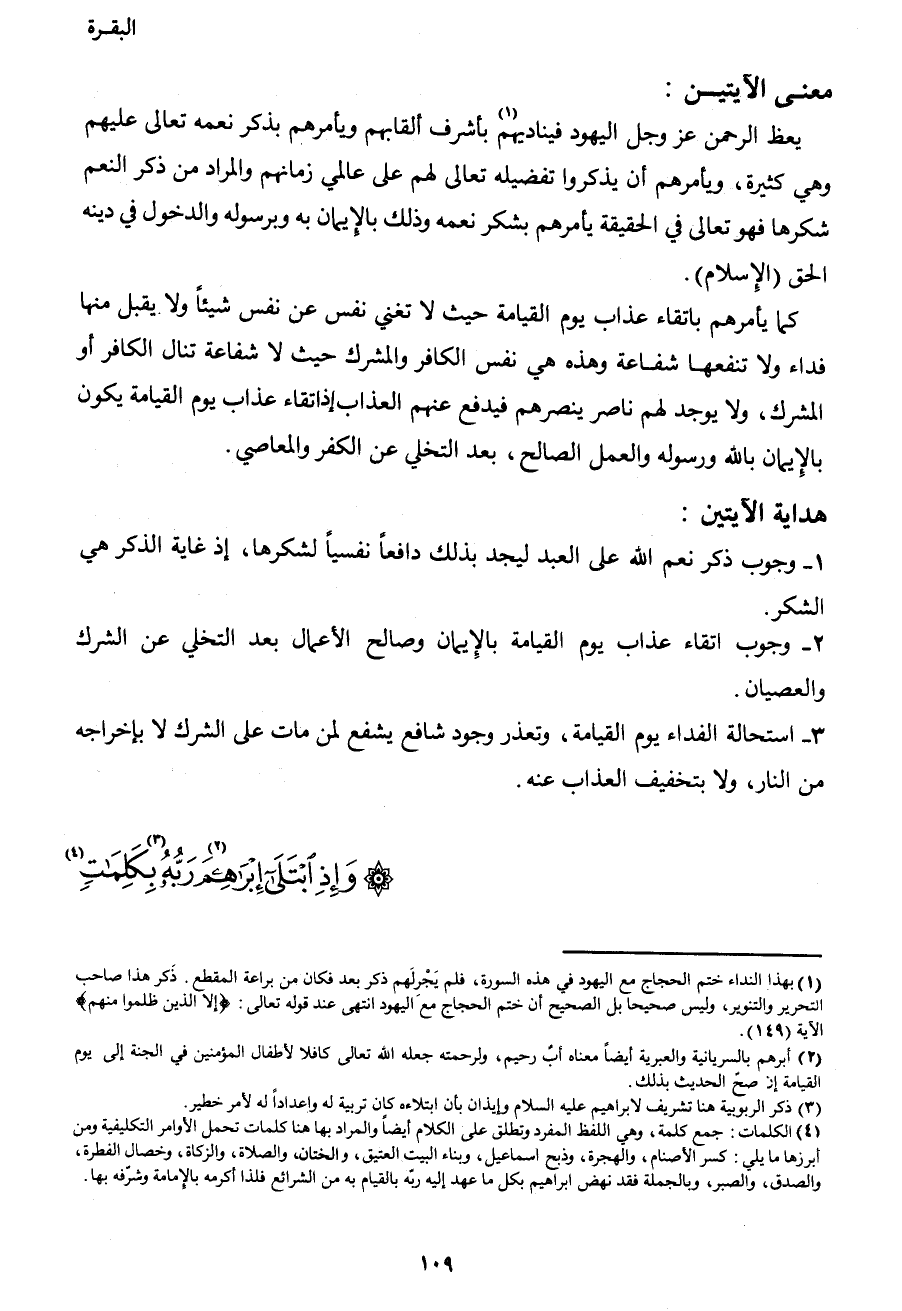 البقـرة
معنـى الآيتيـــن :
يعظ الرحمن عز وجل اليهود فيناديهم(١) بأشرف ألقابهم ويأمرهم بذكر نعمه تعالى عليهم
وهي كثيرة، ويأمرهم أن يذكروا تفضيله تعالى لهم على عالمي زمانهم والمراد من ذكر النعم
شكرها فهو تعالى في الحقيقة يأمرهم بشكر نعمه وذلك بالإيمان به وبرسوله والدخول في دينه
الحق (الإسلام).
كما يأمرهم باتقاء عذاب يوم القيامة حيث لا تغني نفس عن نفس شيئاً ولا يقبل منها
فداء ولا تنفعهـا شفـاعة وهذه هي نفس الكافر والمشرك حيث لا شفاعة تنال الكافر أو
المشرك، ولا يوجد لهم ناصر ينصرهم فيدفع عنهم العذاب إذاتقاء عذاب يوم القيامة يكون
بالإيمان بالله ورسوله والعمل الصالح، بعد التخلي عن الكفر والمعاصي.
هداية الآيتين :
١ـ وجوب ذكر نعم الله على العبد ليجد بذلك دافعاً نفسياً لشكرها، إذ غاية الذكر هي
الشكر.
٢ـ وجوب اتقاء عذاب يوم القيامة بالإيمان وصالح الأعمال بعد التخلي عن الشرك
والعصيان.
٣ـ استحالة الفداء يوم القيامة، وتعذر وجود شافع يشفع لمن مات على الشرك لا بإخراجه
من النار، ولا بتخفيف العذاب عنه.
۞ وَإِذِ ٱبْتَلَىٰٓ إِبْرَٰهِـۧمَ(٢) رَبُّهُۥ(٣) بِكَلِمَٰتٍ(٤)
(١) بهذا النداء ختم الحجاج مع اليهود في هذه السورة، فلم يَجْرِلَهم ذكر بعد فكان من براعة المقطع. ذَكر هذا صاحب
التحرير والتنوير، وليس صحيحا بل الصحيح أن ختم الحجاج مع اليهود انتهى عند قوله تعالى: ﴿إلا الذين ظلموا منهم﴾
الآية (١٤٩).
(٢) أبرهم بالسريانية والعبرية أيضاً معناه أبٌ رحيم، ولرحمته جعله الله تعالى كافلا لأطفال المؤمنين في الجنة إلى يوم
القيامة إن صحّ الحديث بذلك.
(٣) ذكر الربوبية هنا تشريف لابراهيم عليه السلام وإيذان بأن ابتلاءه كان تربية له واعداداً له لأمر خطير.
(٤) الكلمات: جمع كلمة، وهي اللفظ المفرد وتطلق على الكلام أيضاً والمراد بها هنا كلمات تحمل الأوامر التكليفية ومن
أبرزها ما يلي: كسر الأصنام، والهجرة، وذبح اسماعيل، وبناء البيت العتيق، والختان، والصلاة، والزكاة، وخصال الفطرة،
والصدق، والصبر، وبالجملة فقد نهض ابراهيم بكل ما عهد إليه ربّه بالقيام به من الشرائع فلذا أكرمه بالإمامة وشرّفه بها.
١٠٩